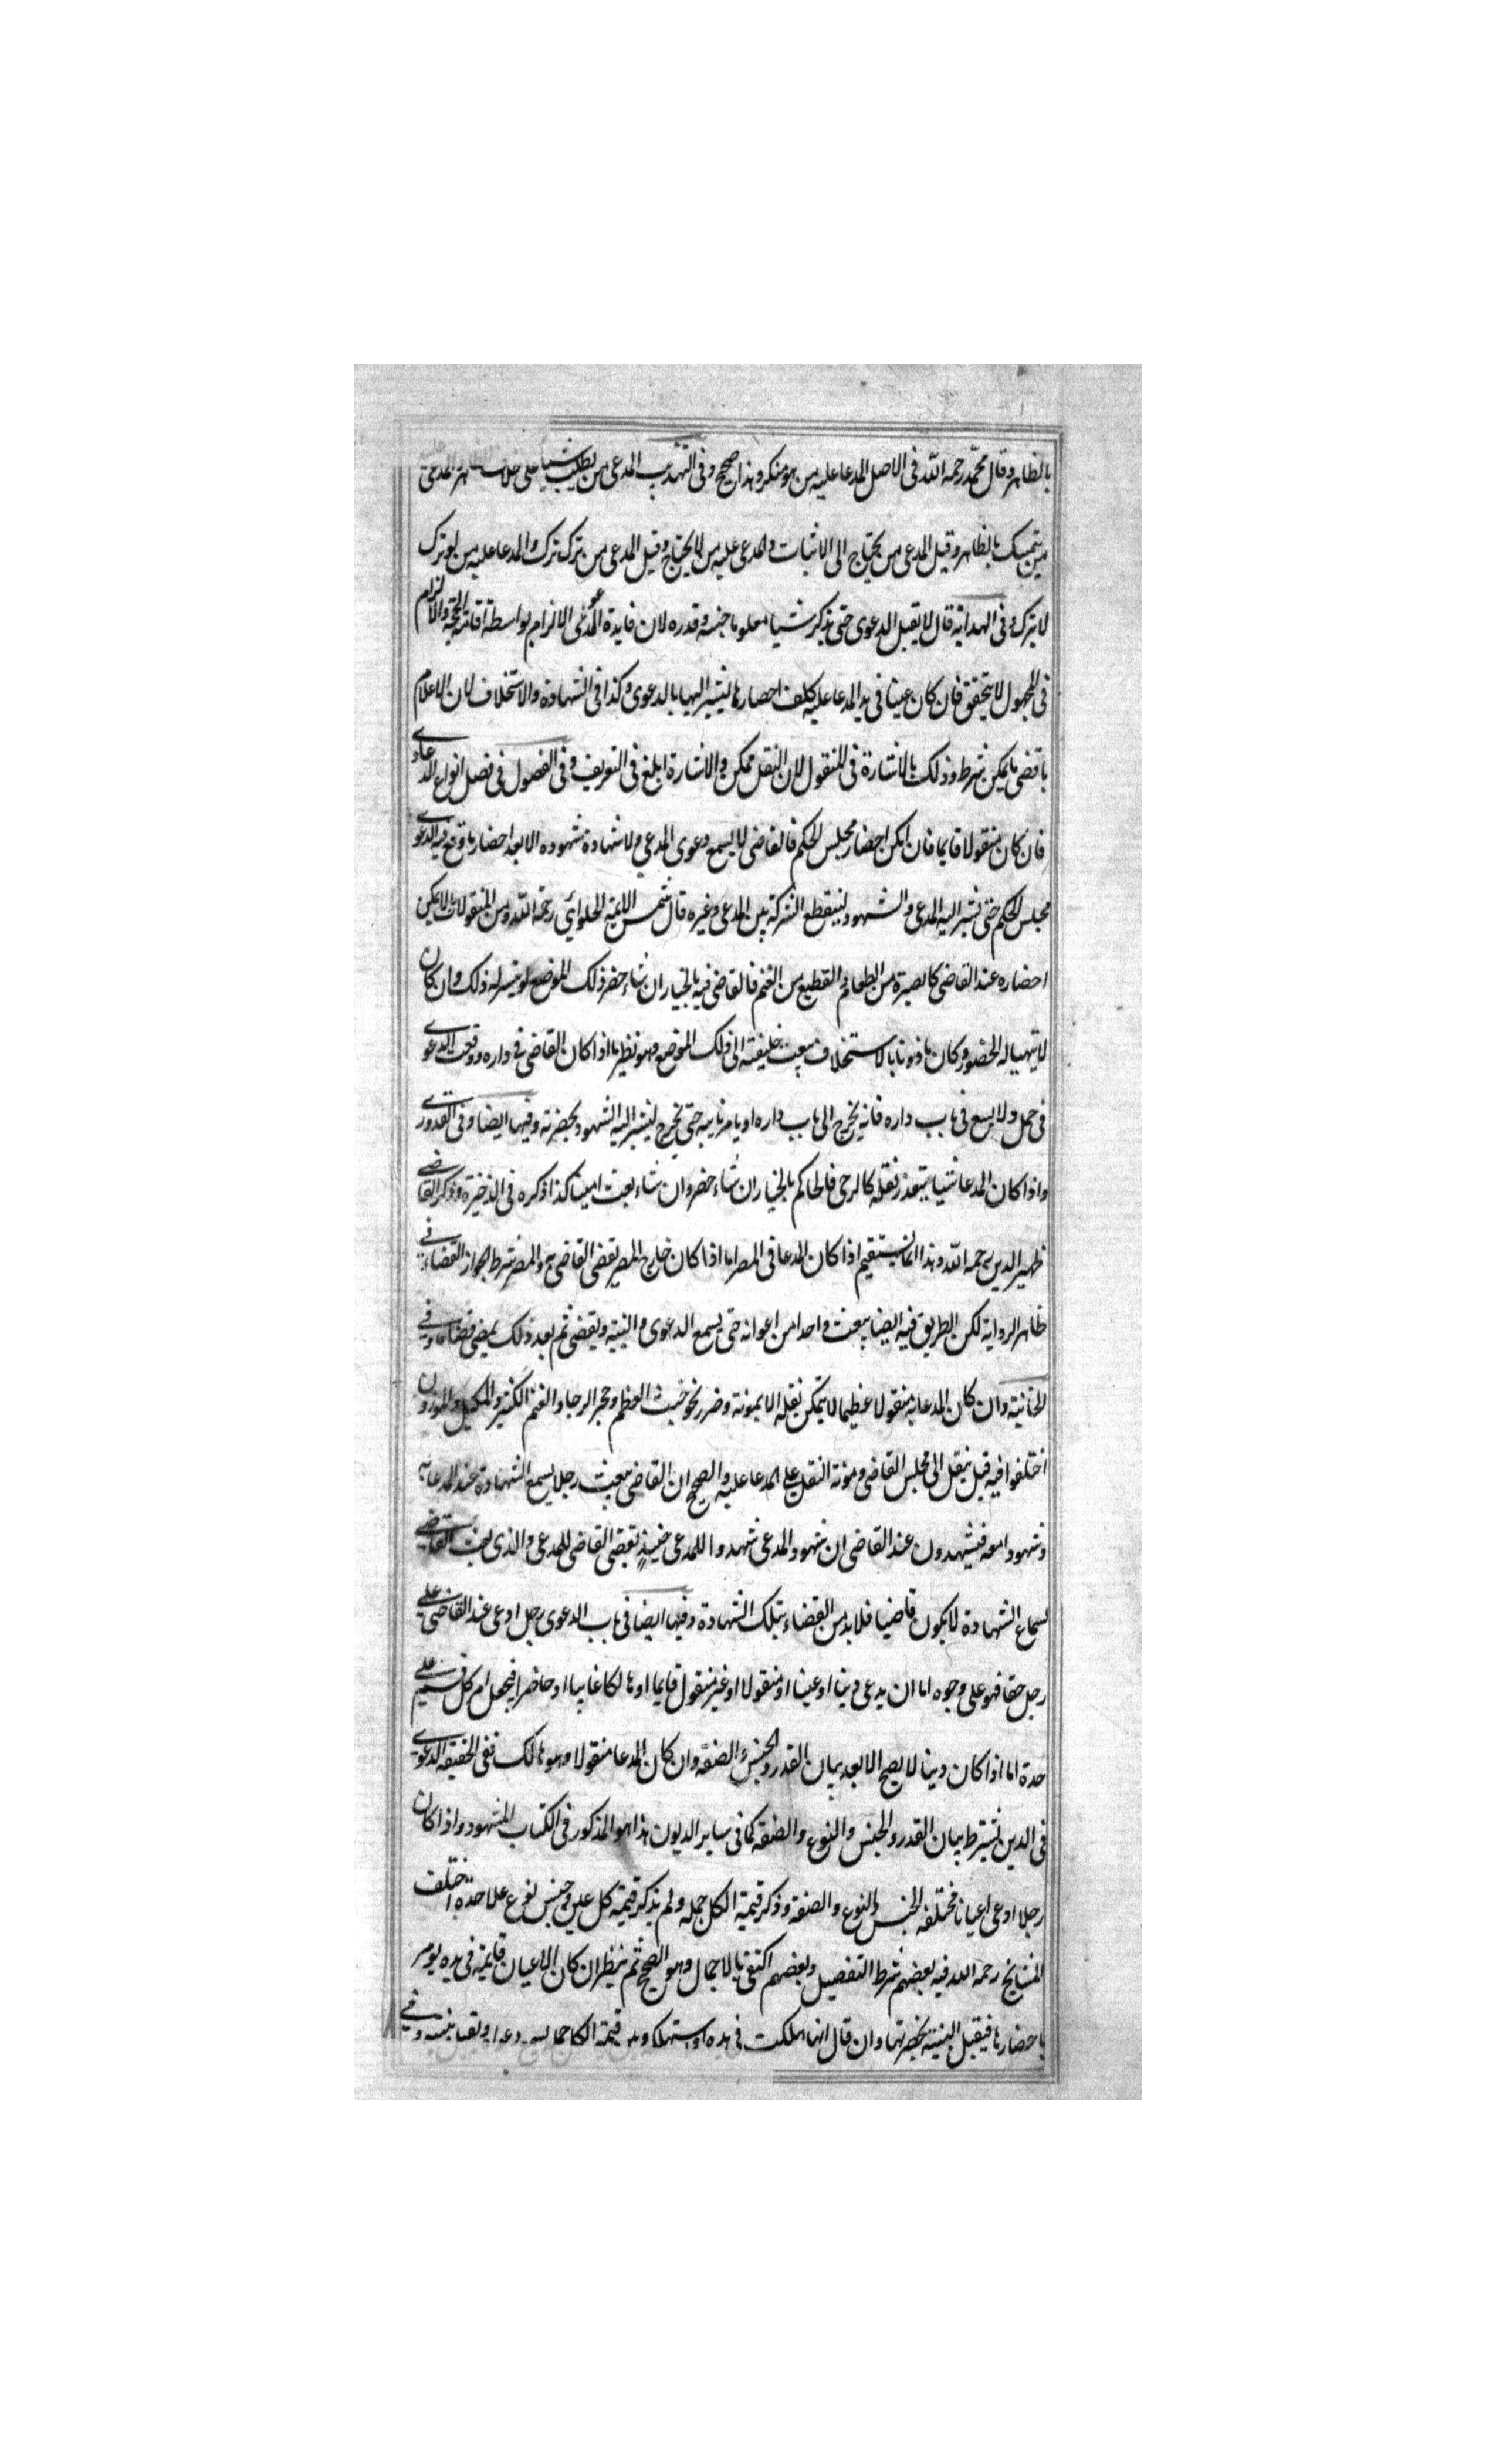 بالظاهر وقال محمد رحمه الله فى الاصل المدعا عليه من هو منكر وهذا صحيح وفى التهذيب المدعى من يطلب شيأ على خلاف المدعى
من يتمسك بالظاهر وقيل المدعى من يحتاج الى الاثبات والمدعى عليه من لا يحتاج وقيل المدعى من ترك ترك والمدعا عليه من لو ترك
لا يترك وفى الهداية قال لا يقبل الدعوى حتى يذكر شيا معلوما جنسه وقدره لان فايدة الدعوى الالزام بواسطة اقامة الحجة والالزام
فى المجهول لا يتحقق فان كان عينا فى يد المدعا عليه كلف احضارها ليشير اليها بالدعوى وكذا فى الشهادة والاستحلاف لان الاعلام
باقصى ما يمكن شرط وذلك بالاشارة فى المنقول لان النقل ممكن والاشارة ابلغ فى التعريف وفى الفصول فى فصل انواع الدعاوى
فان كان منقولا قايما فان امكن احضاره مجلس الحكم فالقاضى لا يسمع دعوى المدعى ولا شهادة شهوده الا بعد احضار ما وقع فيه الدعوى
مجلس الحكم حتى يشير اليه المدعى والشهود لينقطع الشركة بين المدعى وغيره قال شمس الائمة الحلوائي رحمه الله ومن المنقولات ما لا يمكن
احضاره عند القاضى كالصبرة من الطعام والقطيع من الغنم فالقاضى فيه بالخيار ان شاء حضر ذلك الموضع لو تيسر له ذلك وان كان
لا يتهيا له الحضور وكان ماذونا بالاستخلاف يبعث خليفته الى ذلك الموضع وهو نظير ما اذا كان القاضى فى داره ووقعت الدعوى
فى جمل ولا يسع فى باب داره فانه يخرج الى باب داره او يامر نايبه حتى يخرج ليشير اليه الشهود بحضرته وفيها ايضا وفى القدورى
واذا كان المدعا شيا يتعذر نقله كالرحى فالحاكم بالخيار ان شاء حضر وان شاء بعث امينا كذا ذكره فى الذخيرة وذكر القاضى
ظهير الدين رحمه الله وهذا انما يستقيم اذا كان المدعا فى المصر اما اذا كان خارج المصر يقضى القاضى به والمصر شرط لجواز القضاء فى
ظاهر الرواية لكن الطريق فيه ايضا يبعث واحدا من اعوانه حتى يسمع الدعوى والبينة ويقضى ثم بعد ذلك يمضى قضاءه وفى
الخانية وان كان المدعا به منقولا عظيما لا يمكن نقله الا بمونة وضرر نحو خشب العظم وحجر الرحا والغنم الكثير والمكيل والموزون
اختلفوا فيه قيل ينقل الى مجلس القاضى ومونة النقل على المدعا عليه والصحيح ان القاضى يبعث رجلا يسمع الشهادة عند المدعا به
وشهودا معه فيشهدون عند القاضى ان شهود المدعى شهدوا للمدعى حينيذ يقضى القاضى للمدعى والذى بعث القاضى
لسماع الشهادة لا يكون قاضيا فلا بد من القضاء بتلك الشهادة وفيها ايضا فى باب الدعوى رجل ادعى عند القاضى على
رجل حقا فهو على وجوه اما ان يدعى دينا او عينا او منقولا او غير منقول قايما او هالكا غايبا او حاضرا فيجعل ام كل قسم على
حدة اما اذا كان دينا لا يصح الا بعد بيان القدر والجنس والصفة وان كان المدعا منقولا وهو هالك ففى الحقيقة الدعوى
فى الدين يشترط بيان القدر والجنس والنوع والصفة كما فى ساير الديون هذا هو المذكور فى الكتاب المشهود واذا كان
رجلا ادعى اعيانا مختلفة الجنس والنوع والصفة وذكر قيمة الكل جملة ولم يذكر قيمة كل عين وجنس نوع علاحدة اختلف
المشايخ رحمه الله فيه بعضهم شرط التفصيل وبعضهم اكتفى بالاجمال وهو الصحيح ثم ينظر ان كان الاعيان قايمة فى يده يومر
باحضارها فيقبل البينة بحضرتها وان قال انها هلكت فى يده او استهلك وبين قيمة الكل جملا يسمع دعواه ويقبل بينته وفى